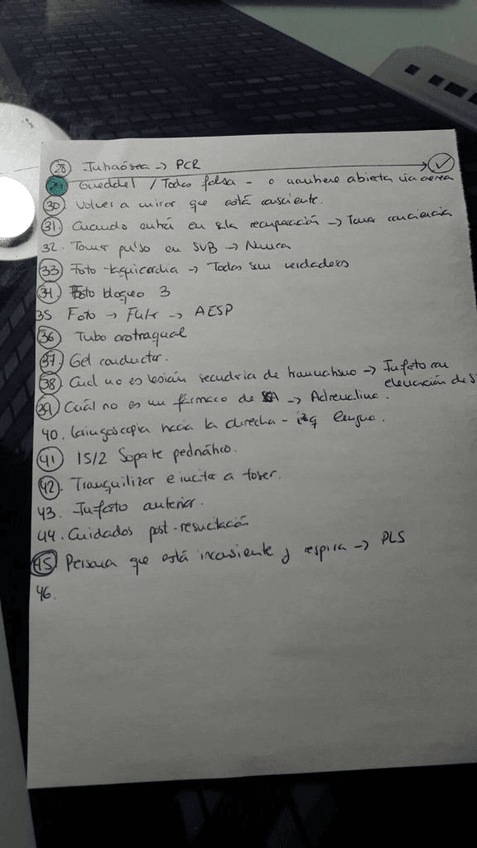 28 Intraósea → PCR → ✓
29 Gueddel / Todas falsa - o mantiene abierta via aerea
30 Volver a mirar que está consciente.
31. Cuando entra en sala recuperación → Toma conciencia
32. Tomar pulso en SVB → Nunca
33 Foto taquicardia → Todas son verdaderas
34 Foto bloqueo 3
35 Foto → Fultr → AESP
36 Tubo orotraqual
37 Gel conductor.
38 Cual no es lesión secundria de → Infarto con elevación de S
39 Cuál no es un fármaco de SA → Adrenalina.
40. laingoscopia hacia la derecha - izq lengua.
41 15/2 Soporte pediatrico.
42. Tranquilizar e incitar a toser.
43. Infarto anterior.
44. Cuidados post-resucitación
45 Persona que está inconsiente y respira → PLS
46.